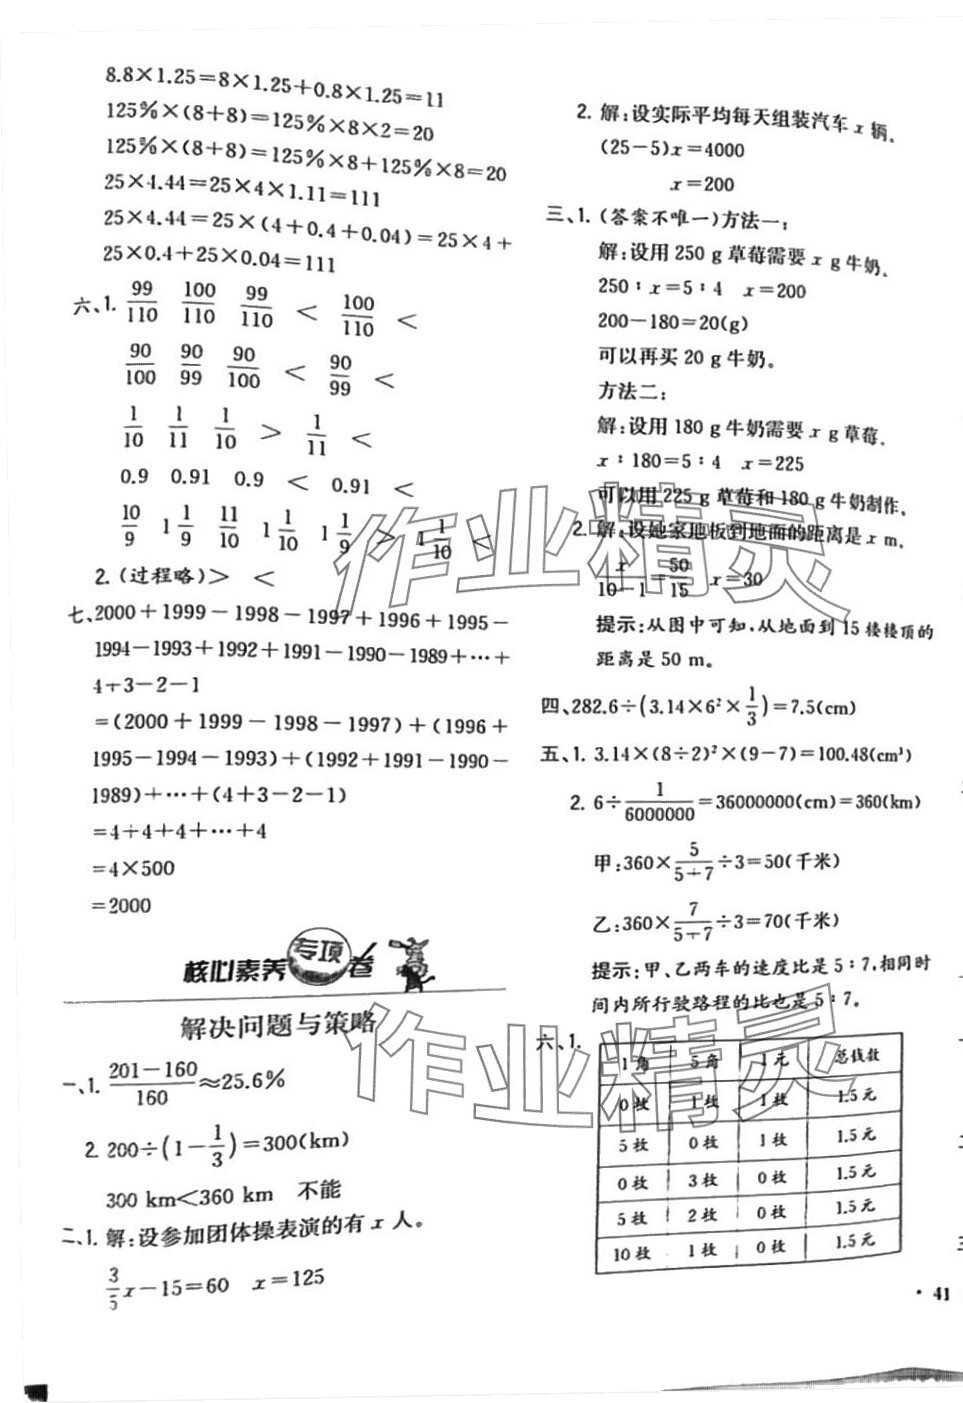 8.8×1.25=8×1.25+0.8×1.25=11
125%×(8+8)=125%×8×2=20
125%×(8+8)=125%×8+125%×8=20
25×4.44=25×4×1.11=111
25×4.44=25×(4+0.4+0.04)=25×4+
25×0.4+25×0.04=111
六、1. 99/110 100/110 99/110 < 100/110 <
90/100 90/99 90/100 < 90/99 <
1/10 1/11 1/10 > 1/11 <
0.9 0.91 0.9 < 0.91 <
10/9 1 1/9 11/10 1 1/10 1 1/9 > 1 1/10 <
2.(过程略)> <
七、2000+1999-1998-1997+1996+1995-
1994-1993+1992+1991-1990-1989+…+
4+3-2-1
=(2000+1999-1998-1997)+(1996+
1995-1994-1993)+(1992+1991-1990-
1989)+…+(4+3-2-1)
=4+4+4+…+4
=4×500
=2000
核心素养专项卷
解决问题与策略
一、1. (201-160)/160≈25.6%
2. 200÷(1-1/3)=300(km)
300 km<360 km 不能
二、1. 解:设参加团体操表演的有 x 人。
3/5x-15=60 x=125
2. 解:设实际平均每天组装汽车 x 辆。
(25-5)x=4000
x=200
三、1.(答案不唯一)方法一:
解:设用 250 g 草莓需要 x g 牛奶。
250∶x=5∶4 x=200
200-180=20(g)
可以再买 20 g 牛奶。
方法二:
解:设用 180 g 牛奶需要 x g 草莓。
x∶180=5∶4 x=225
可以用 225 g 草莓和 180 g 牛奶制作。
2. 解:设她家地板到地面的距离是 x m。
x/(10-1)=50/15 x=30
提示:从图中可知,从地面到 15 楼楼顶的
距离是 50 m。
四、282.6÷(3.14×6²×1/3)=7.5(cm)
五、1. 3.14×(8÷2)²×(9-7)=100.48(cm³)
2. 6÷1/6000000=36000000(cm)=360(km)
甲:360×5/(5+7)÷3=50(千米)
乙:360×7/(5+7)÷3=70(千米)
提示:甲、乙两车的速度比是 5∶7,相同时
间内所行驶路程的比也是 5∶7。
六、1.
1角 5角 1元 总钱数
0枚 1枚 1枚 1.5元
5枚 0枚 1枚 1.5元
0枚 3枚 0枚 1.5元
5枚 2枚 0枚 1.5元
10枚 1枚 0枚 1.5元
· 41
作业精灵
作业精灵